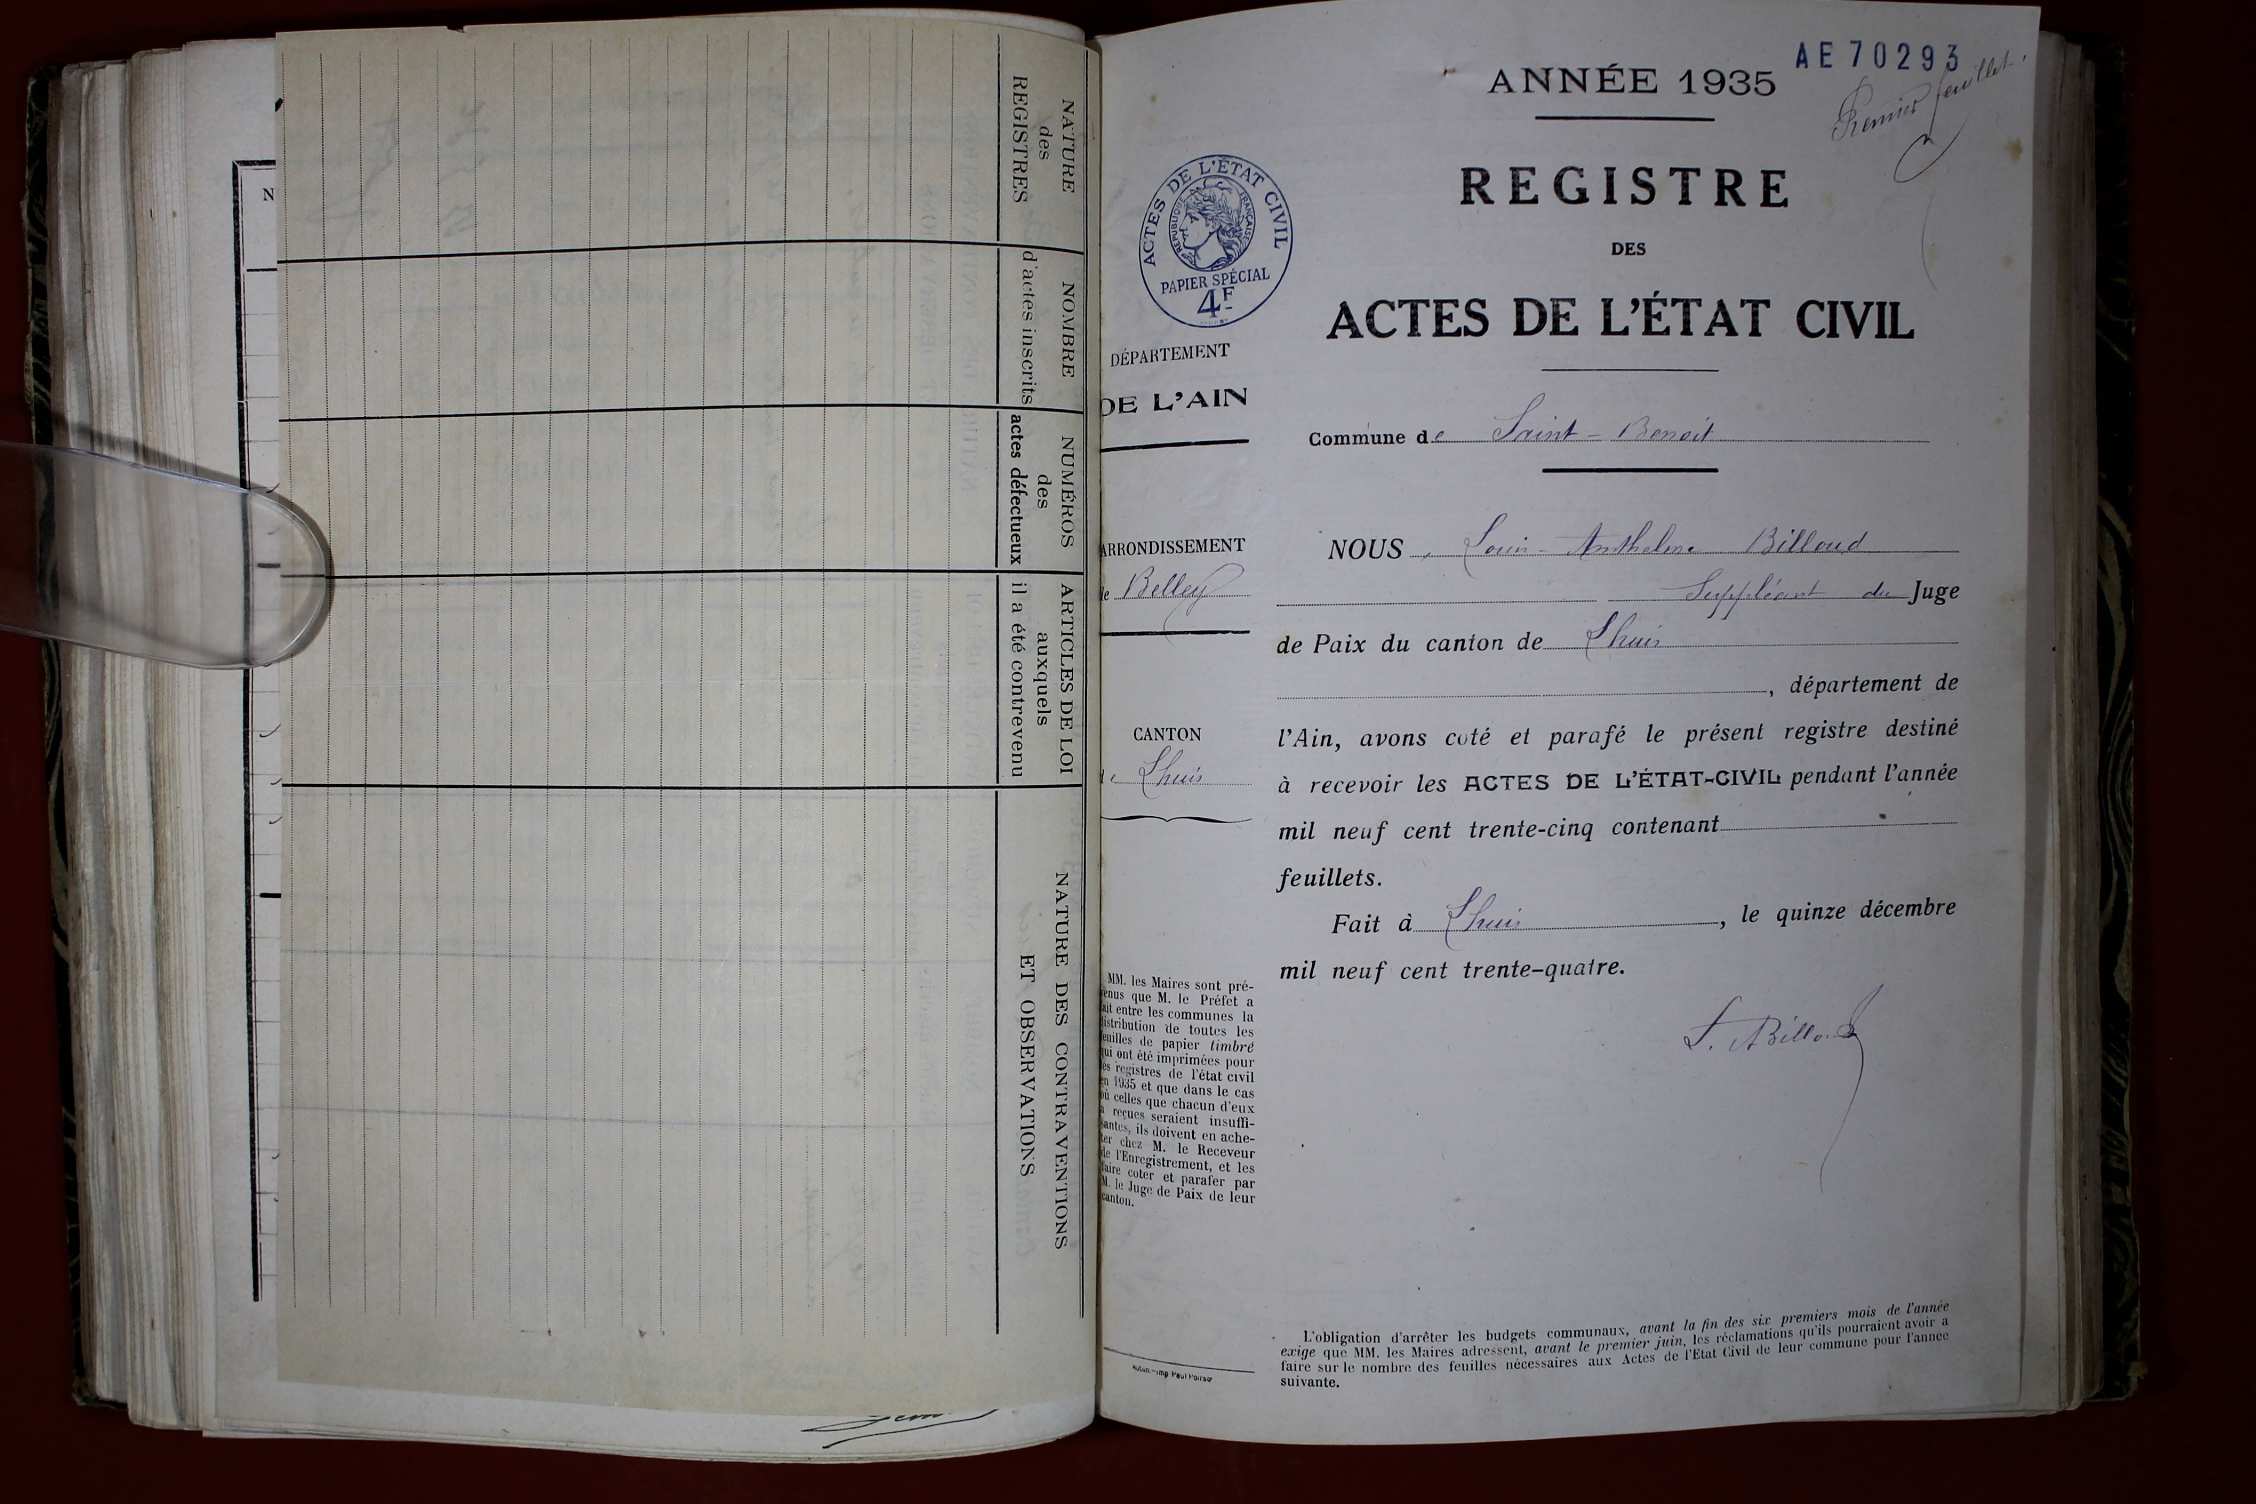 NATURE
des
REGISTRES
NOMBRE
d'actes inscrits
NUMÉROS
des
actes défectueux
ARTICLES DE LOI
auxquels
il a été contrevenu
NATURE DES CONTRAVENTIONS
ET OBSERVATIONS
AE 70293
Premier feuillet.
ANNÉE 1935
REGISTRE
DES
ACTES DE L'ÉTAT CIVIL
ACTES DE L'ÉTAT CIVIL
RÉPUBLIQUE FRANÇAISE
PAPIER SPÉCIAL
4F
DÉPARTEMENT
DE L'AIN
Commune de Saint-Benoit
ARRONDISSEMENT
de Belley
CANTON
de Lhuis
NOUS, Louis-Anthelme Billoud
Suppléant du Juge
de Paix du canton de Lhuis
, département de
l'Ain, avons coté et parafé le présent registre destiné
à recevoir les ACTES DE L'ÉTAT-CIVIL pendant l'année
mil neuf cent trente-cinq contenant
feuillets.
Fait à Lhuis, le quinze décembre
mil neuf cent trente-quatre.
L. Billoud
MM. les Maires sont pré-
venus que M. le Préfet a
fait entre les communes la
distribution de toutes les
feuilles de papier timbré
qui ont été imprimées pour
les registres de l'état civil
en 1935 et que dans le cas
où celles que chacun d'eux
a reçues seraient insuffi-
santes, ils doivent en ache-
ter chez M. le Receveur
de l'Enregistrement, et les
faire coter et parafer par
M. le Juge de Paix de leur
canton.
L'obligation d'arrêter les budgets communaux, avant la fin des six premiers mois de l'année
exige que MM. les Maires adressent, avant le premier juin, les réclamations qu'ils pourraient avoir à
faire sur le nombre des feuilles nécessaires aux Actes de l'Etat Civil de leur commune pour l'année
suivante.